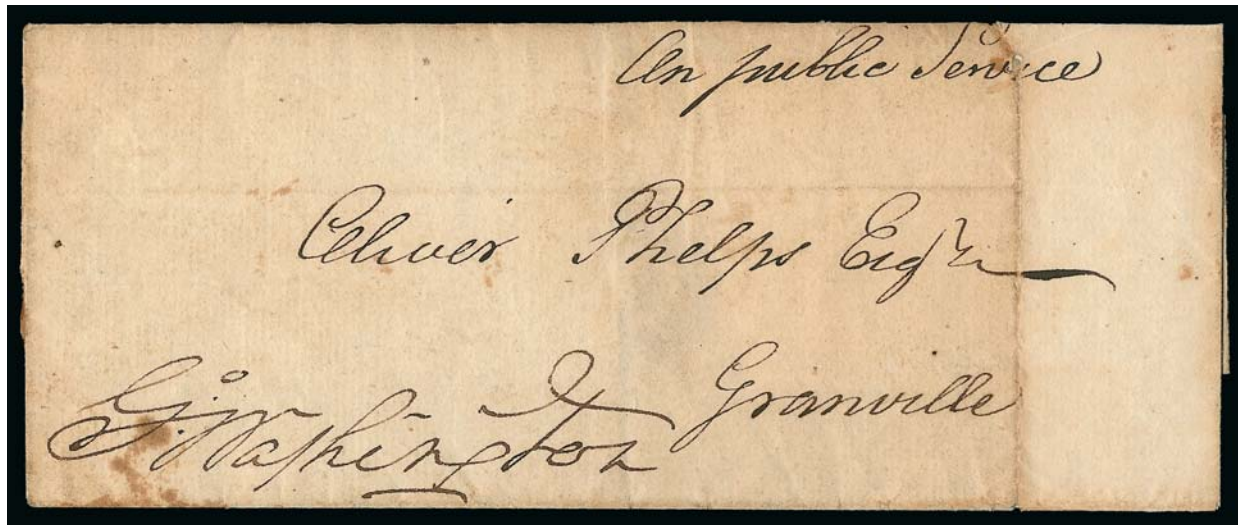 On public Service
Oliver Phelps Esqr
Granville
Go: Washington